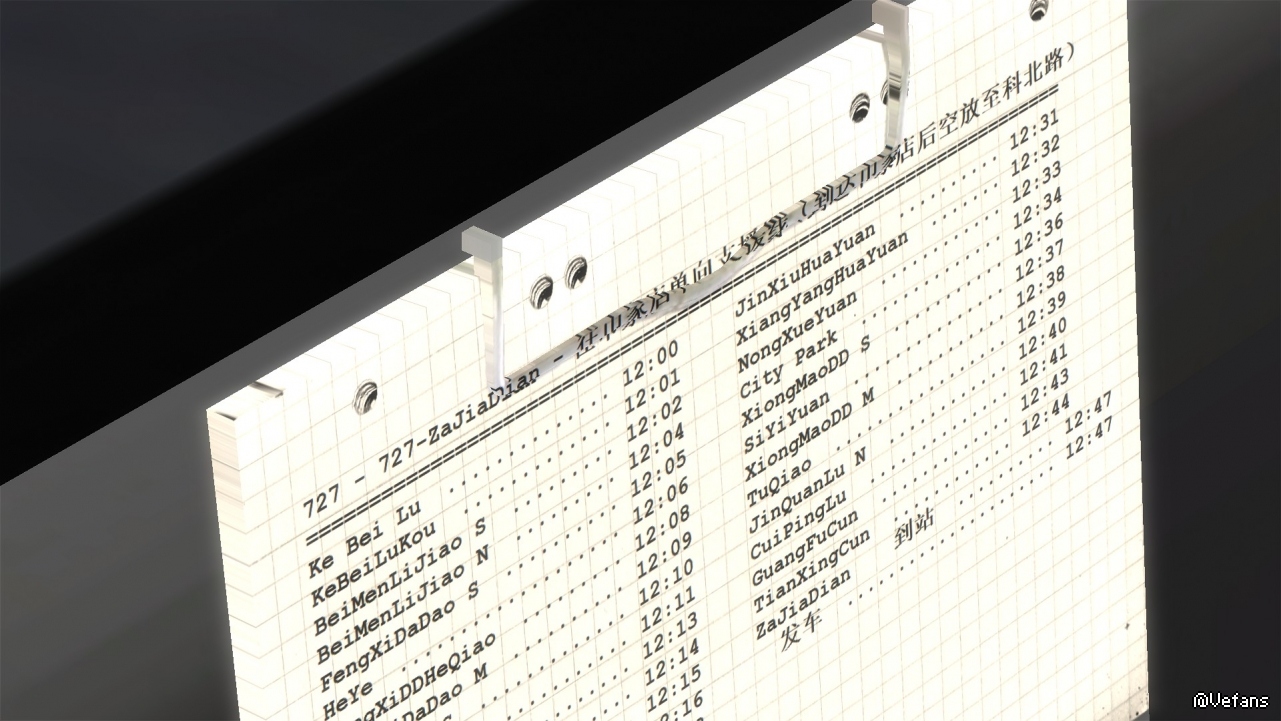 727 - 727-ZaJiaDian - 家店单向支援线（到达 家店后空放至科北路）
Ke Bei Lu 12:00
KeBeiLuKou 12:01
BeiMenLiJiao S 12:02
BeiMenLiJiao N 12:04
FengXiDaDao S 12:05
HeYe 12:06
gXiDDHeQiao 12:08
DaDao M 12:09
12:10
12:11
12:13
12:14
12:15
:16
JinXiuHuaYuan 12:31
XiangYangHuaYuan 12:32
NongXueYuan 12:33
City Park 12:34
XiongMaoDD S 12:36
SiYiYuan 12:37
XiongMaoDD M 12:38
TuQiao 12:39
JinQuanLu N 12:40
CuiPingLu 12:41
GuangFuCun 12:43
TianXingCun 12:44
ZaJiaDian 到站 12:47
发车 12:47
@Vefans